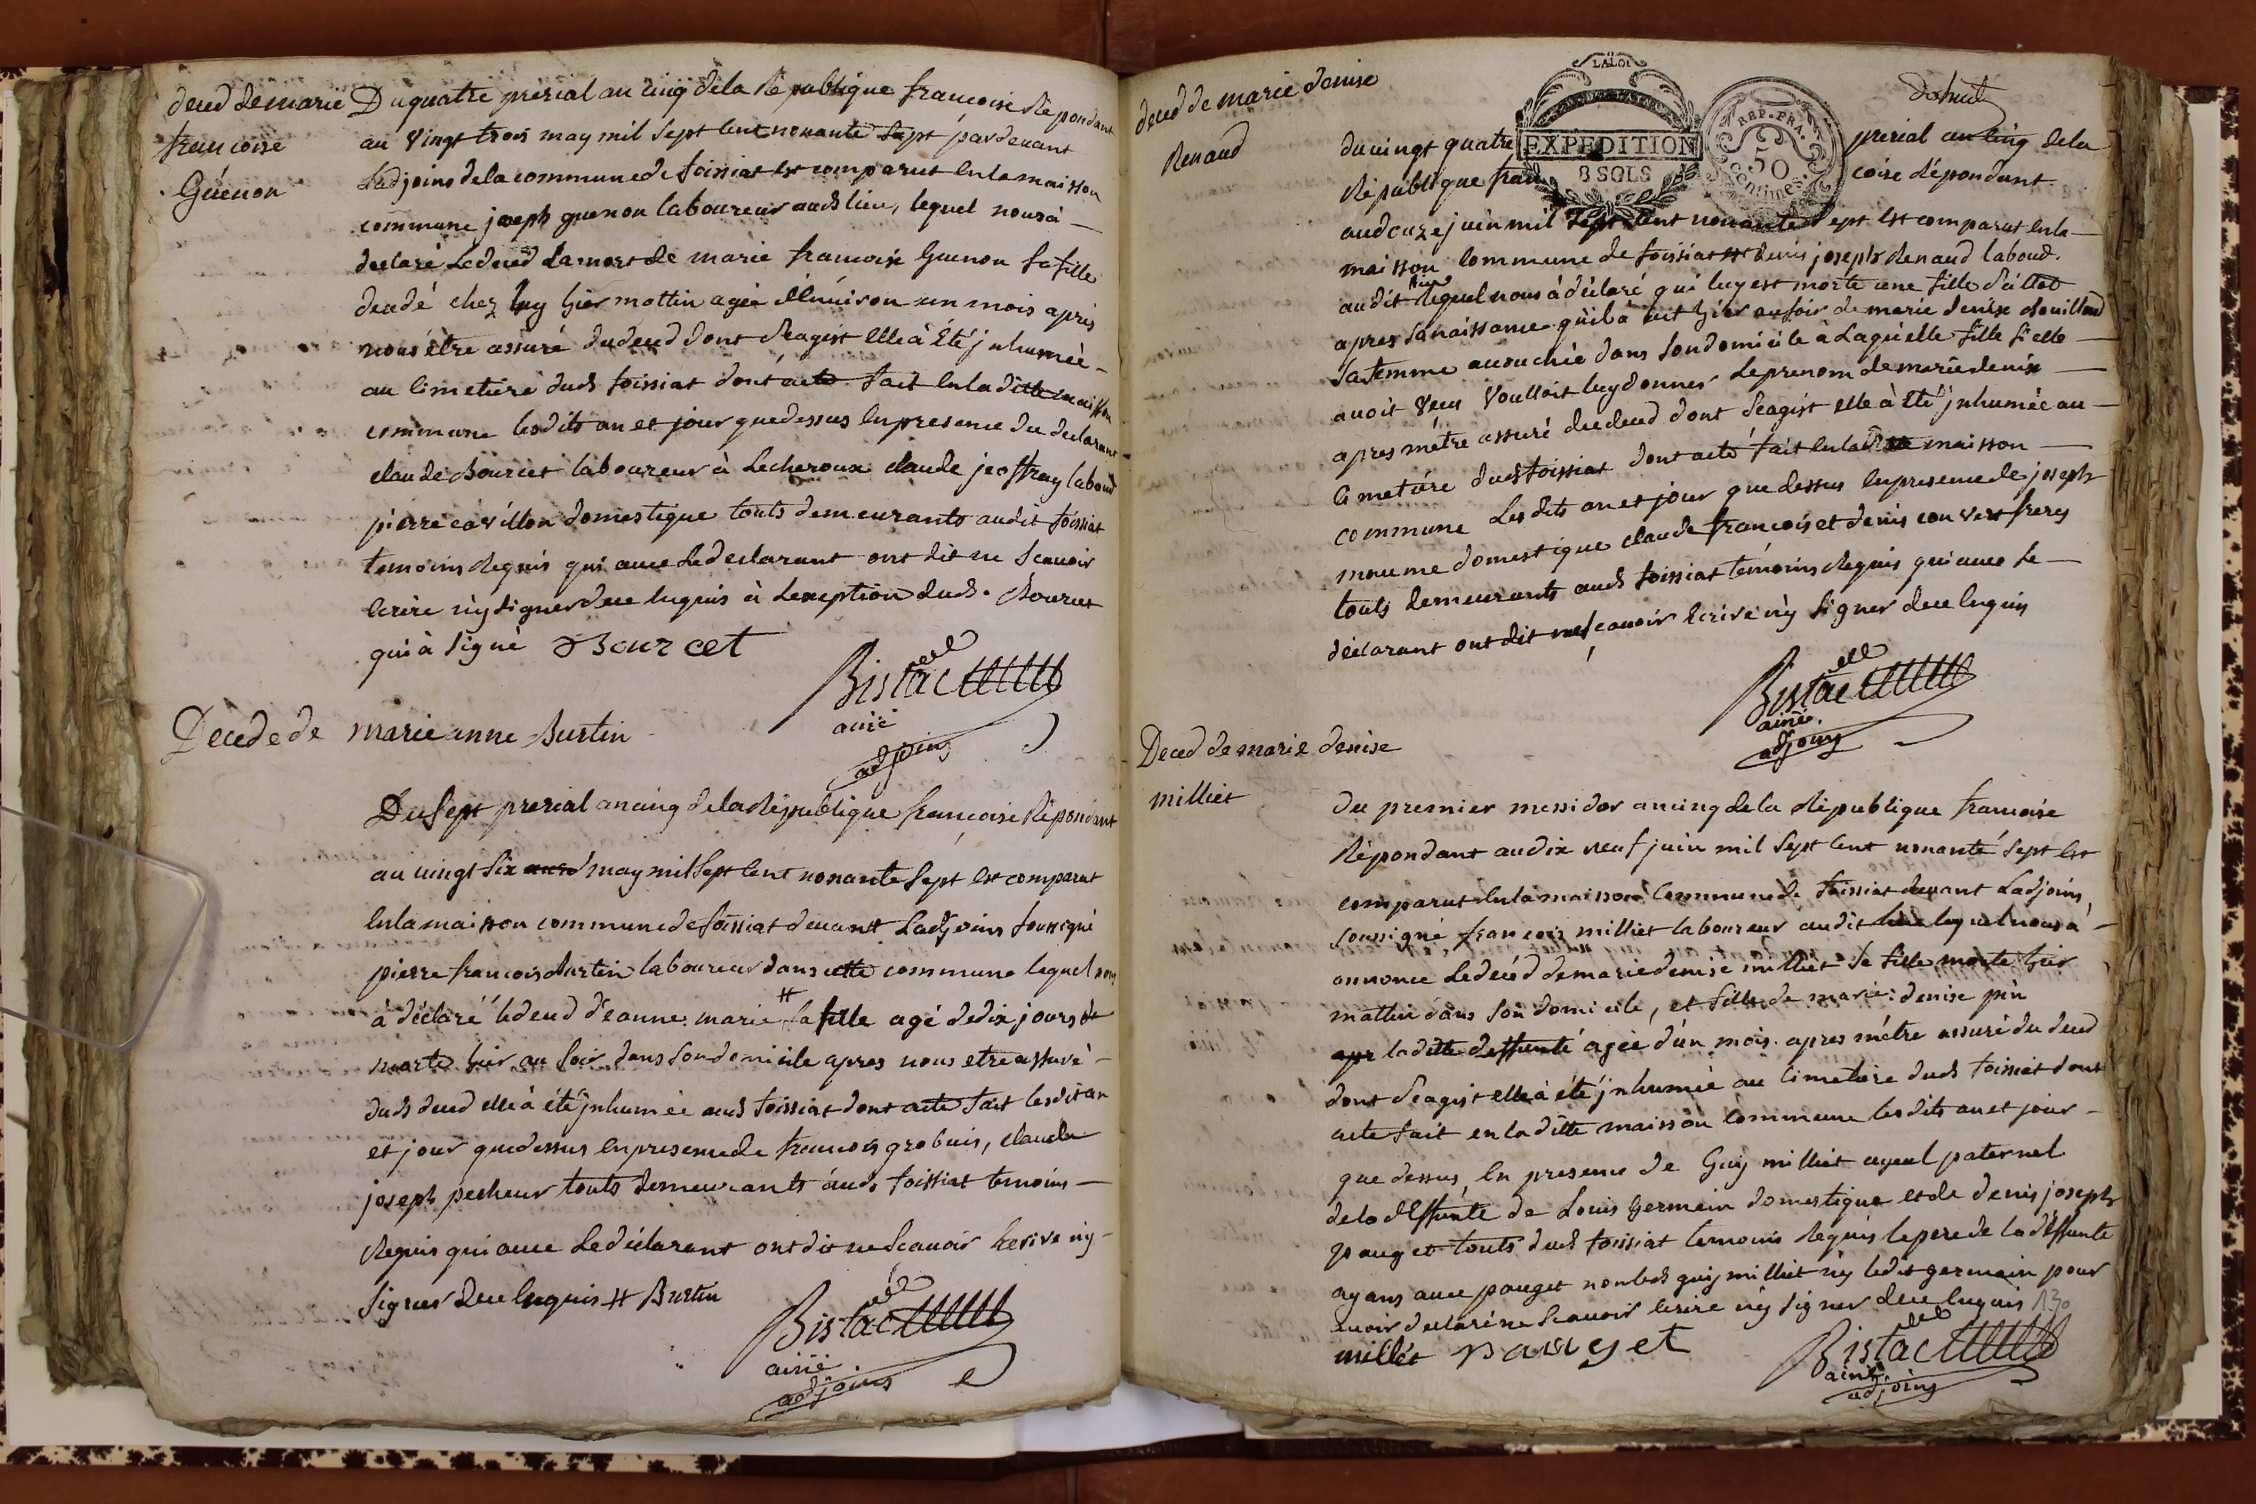 deced de marie
francoise
Guénon
Du quatre prerial an cinq de la République francoise Répondant
au vingt trois may mil sept cent nonante sept pardevant
Ladjoins de la commune de foissiat est comparut en la maisson
commune joseph guenon laboureur auds lieu, lequel nous à
declaré Le deced La mort de marie francoise Guenon sa fille
decedé chez luy hier mattin agée dénviron un mois apres
nous être assuré du deced dont seagist elle à été jnhumée
au cimetiere duds foissiat dont acte fait en la ditte maisson
commune lesdits an et jour que dessus en presence du declarant
claude Bourcet laboureur à Lecheroux claude jeoffray laboud
pierre cavillon domestique touts demeurants audit foissiat
temoins Requis qui avec Le declarant ont dit ne scavoir
écrire n'y signer de ce enquis à Lexception duds. Bourcet
qui à signé Bourcet
Bistac
ainé
adjoins
Decede de marie anne Burtin
Du sept prerial an cinq de la République francoise Répondant
au vingt six may mil sept cent nonante sept est comparut
en la maisson commune de foissiat devant Ladjoins soussigné
pierre francois Burtin laboureur dans cette commune lequel nous
à déclaré le deced d'éanne marie # sa fille agé de dix jours et
morte hier au soir dans son domicile apres nous etre assuré
duds deced elle à été jnhumée auds foissiat dont acte fait lesdit an
et jour que dessus en presence de francois grobuis, claude
joseph pecheur touts demeurants auds foissiat temoins
Requis qui avec Le déclarant ont dit ne scavoir écrire n'y
signer de ce enquis # Burtin
Bistac
ainé
adjoins
deced de marie denise
Renaud
LALOI
EXPEDITION
8 SOLS
REP. FRA.
50
centimes
du vingt quatre prerial an cinq de la
République francoise dépondant
au douze juin mil sept cent nonante sept est comparut en la
maisson commune de foissiat denis joseph Renaud laboud.
audit lieu lequel nous à déclaré qui luy est morte une fille sittot
apres sa naissance qu'il à eut hier au soir de marie denise douilland
sa femme acouchée dans son domicile à Laquelle fille si elle
avoit veçu voulloit luy donner Le prenom de marie denise
apres métre assuré du deced dont seagist elle à été jnhumée au
cimetiére duds foissiat dont acte fait en lad maisson
commune Lesdits an et jour que dessus en presence de joseph
moeume domestique claude francois et denis convert freres
touts demeurants auds foissiat témoins Requis qui avec le
déclarant ont dit ne scavoir écrire n'y signer de ce enquis
Bistac
ainé.
adjoins
Deced de marie denise
milliet
du premier messidor an cinq de la République francoise
Répondant au dix neuf juin mil sept cent nonanté sept est
comparut en la maisson Commune de foissiat devant Ladjoins,
soussigné francois milliet laboureur audit lieu lequel nous à
annonce Le deced de marie denise milliet sa fille morte hier
mattin dans son domicile, et fille de marie denise pin
ladite deffunté agée d'un mois. apres métre assuré du deced
dont Seagist elle à été jnhumée au cimetiere duds foissiat dont
acte fait en la ditte maisson commune lesdits an et jour
que dessus, En presence de Guy milliet ayeul paternel
de la deffunte de Louis Germain domestique et de denis joseph
pauget touts duds foissiat temoins Requis le pere de la deffunte
ayans avec pauget non leds guy milliet n'y ledit germain pour
avoir declaré ne scavoir ecrire n'y signer de ce enquis 130
milliet pauget
Bistac
ainé
adjoins